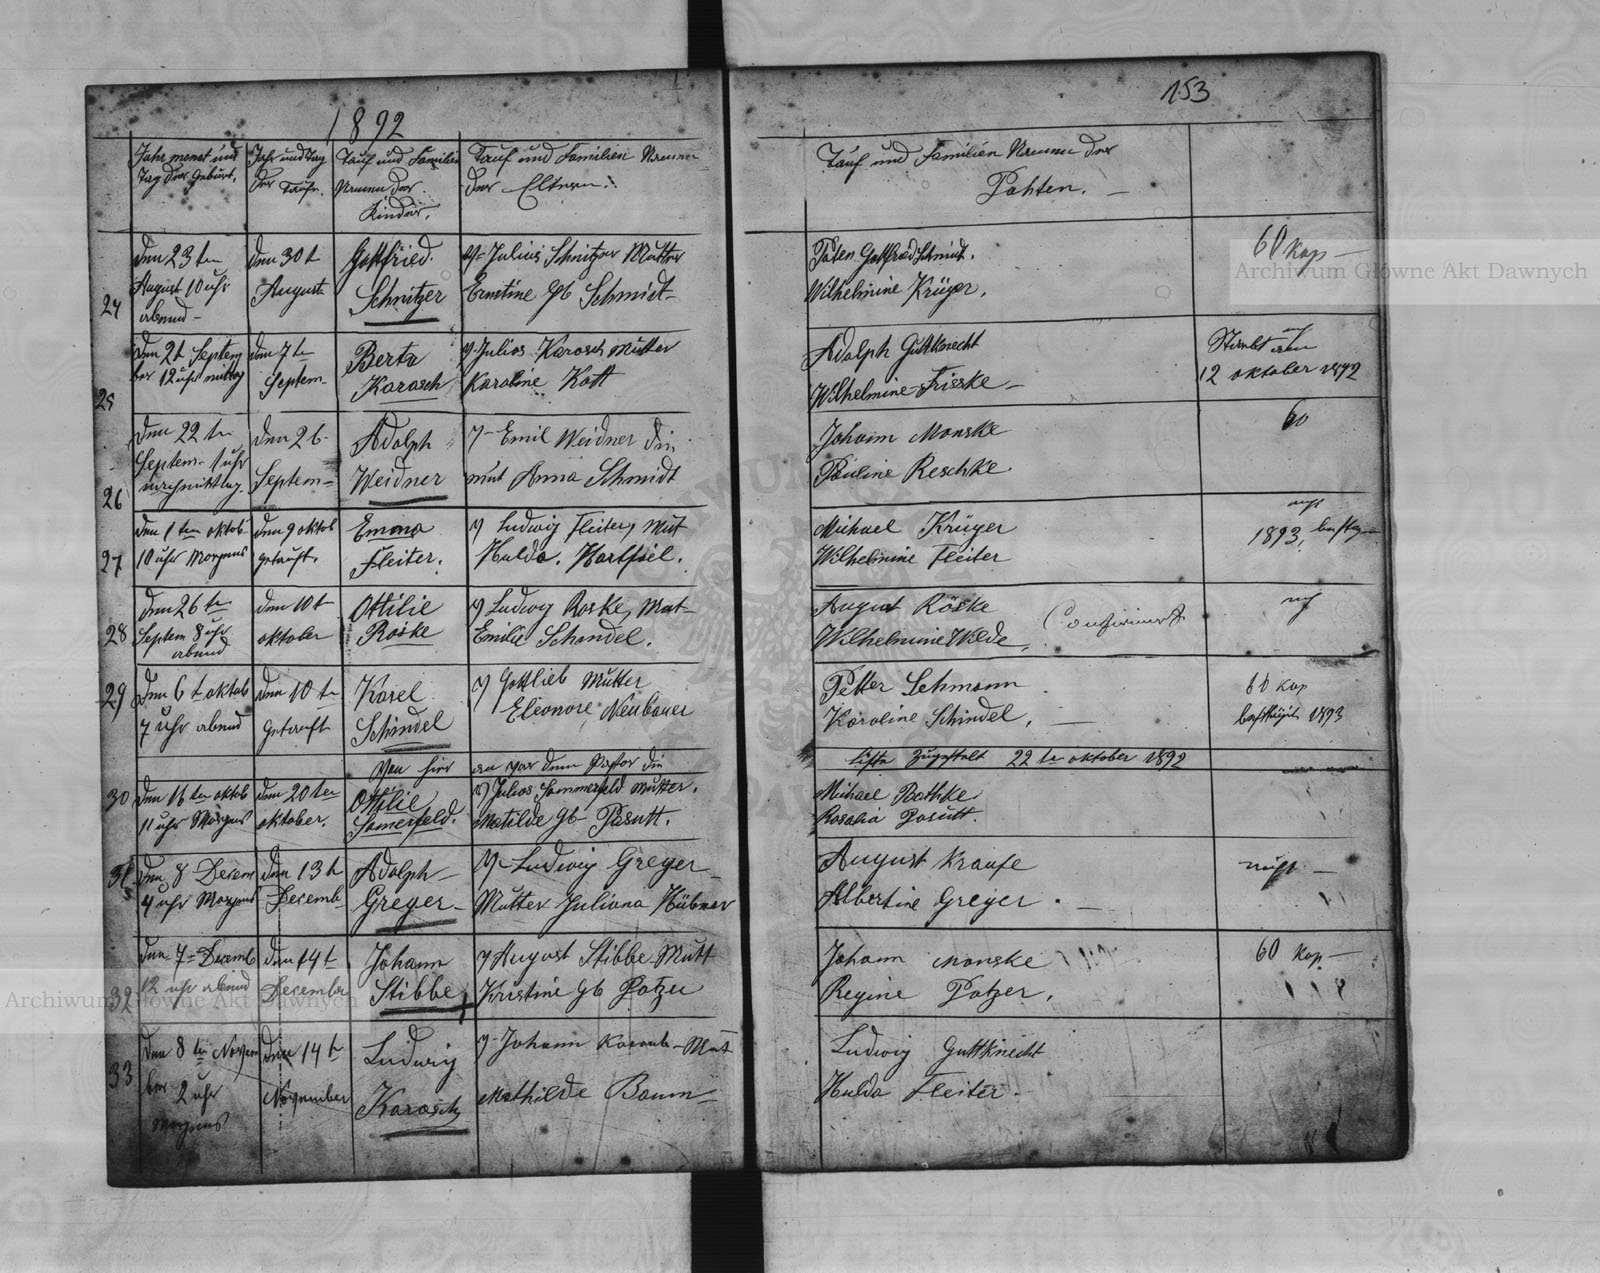 1892
153
Jahr monat und Tag der Geburt.
Jahr und Tag der Taufe.
Tauf und Familien Namen der Kinder.
Tauf und Familien Namen der Eltern.
Tauf und Familien Namen der Pahten.
24
den 23 ten August 10 uhr abend
den 30 t August
Gottfried Schnitzer
V Julius Schnitzer Mutter
Ernstine gb Schmidt
Paten Gottfried Schmidt.
Wilhelmine Krüger.
60 Kop
25
den 2 t Septem
ber 12 uhr mittag
den 7 te
Septem
Berta
Karasch
V Julios Karosch Mutter
Karoline Kott
Adolph Guttknecht
Wilhelmine Frisske
12 oktober 1892
26
den 22 te
Septem 1 uhr
nachmittag
den 26
Septem
Adolph
Weidner
V Emil Weidner die
mut Anna Schmidt
Johann Monske
Pauline Reschke
60
27
den 1 ten oktob
10 uhr Morgens
den 9 oktob
getauft.
Emma
Fleiter.
V Ludwig Fleiter, Mut
Hulda. Hartfiel.
Michael Krüger
Wilhelmine Fleiter
1893,
28
den 26 te
Septem 8 uhr
abend
den 10 t
oktober
Ottilie
Röske
V Ludwig Roske, Mut
Emilie Schendel.
August Röske
Wilhelmine Wilde,
Confirmirt
29
den 6 t oktob
7 uhr abend
den 10 te
getauft
Karel
Schindel
V Gottlieb Mutter
Eleonore Neubauer
Petter Lehmann
Karoline Schindel.
60 Kop
1893
Von hier an war dem Pastor die
liste Zugestelt 22 te oktober 1892
30
den 16 ten oktob
11 uhr Morgens
den 20 ten
oktober.
Ottilie
Somerfeld.
V Julios Sommerfeld Mutter.
Matilde gb Pasutt.
Michael Rathke
Rosalia Posutt.
31
den 8 Decem
4 uhr Morgens
den 13 t
Decemb
Adolph
Greger
V Ludwig Greger
Mutter Juliana Hübner
August Krause
Albertine Greger.
nicht
32
den 7 Decemb
12 uhr abend
den 14 t
December
Johann
Stibbe
V August Stibbe Mutt
Kristine gb Potzer
Johann Monske
Regine Potzer.
60 Kop
33
den 8 te Novem
ber 2 uhr
Morgens
den 14 te
November
Ludwig
Karosch
V Johann Karosch Mut
Mathilde Baum
Ludwig Guttknecht
Hulda Fleiter.
Archiwum Główne Akt Dawnych
Archiwum Główne Akt Dawnych